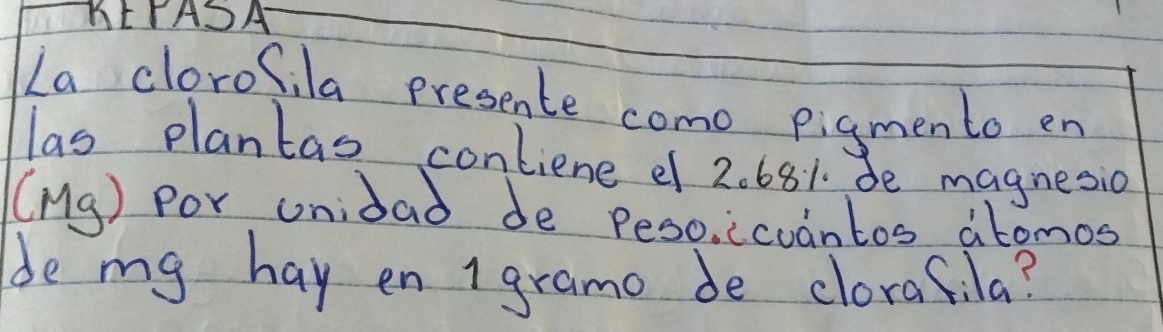 REPASA
La clorofila presente como pigmento en
las plantas contiene el 2.68% de magnesio
(Mg) por unidad de peso. ¿cuántos átomos
de mg hay en 1 gramo de clorafila?